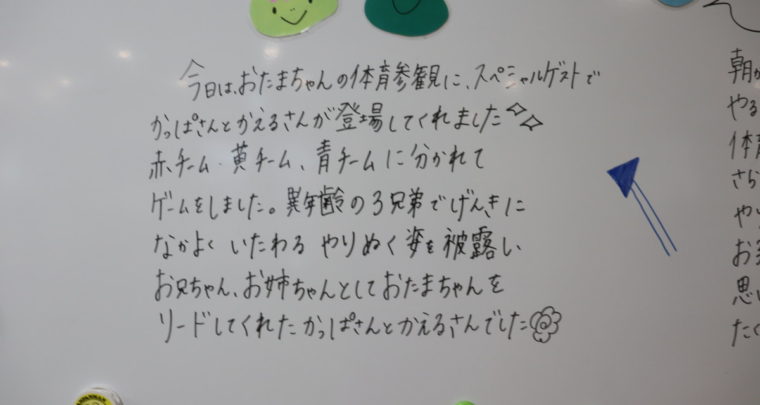 今日は、おたまちゃんの体育参観に、スペシャルゲストで
かっぱさんとかえるさんが登場してくれました
赤チーム・黄チーム、青チームに分かれて
ゲームをしました。異年齢の3兄弟でげんきに
なかよく いたわる やりぬく 姿を被露い
お兄ちゃん、お姉ちゃんとしておたまちゃんを
リードしてくれた かっぱさんとかえるさんでした
朝か
やる
体育
さら
やり
お
思い
たく